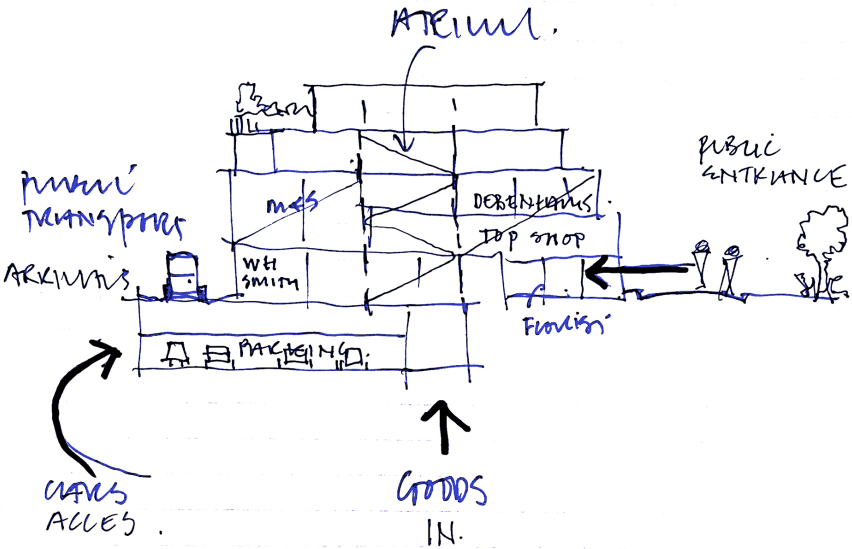 ATRIUM.
PUBLIC
ENTRANCE
PUBLIC
TRANSPORT
ARRIVALS
M&S
DEBENHAMS
TOP SHOP
WH
SMITH
Florist
PARKING
CARS
ACCES.
GOODS
IN.